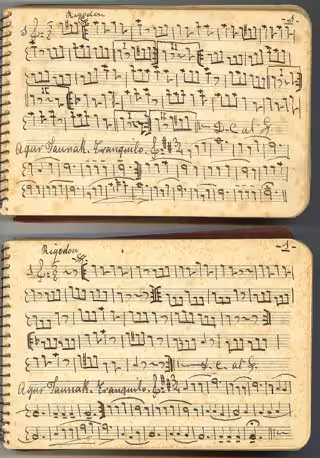 Rigodon -1-
1
D.C. al S.
Agur Jaunak. Tranquilo.
Rigodon -1-
1
D.C. al S.
Agur Jaunak. Tranquilo.